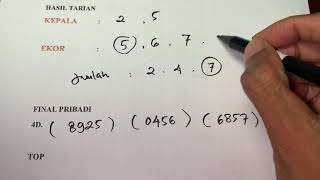 HASIL TARIAN
KEPALA : 2 . 5
EKOR : 5 . 6 . 7 .
Jumlah : 2 . 4 . 7
FINAL PRIBADI
4D. ( 8925 ) ( 0456 ) ( 6857 )
TOP